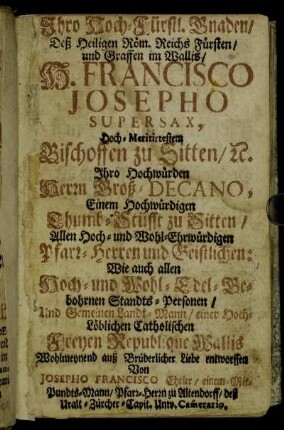 Ihro Hoch-Fürstl. Gnaden/
Deß Heiligen Röm. Reichs Fürsten/
und Graffen im Wallis/
H. FRANCISCO
JOSEPHO
SUPERSAX,
Hoch-Meritirtestem
Bischoffen zu Sitten/ &c.
Ihro Hochwürden
Herrn Groß-DECANO,
Einem Hochwürdigen
Thumb-Stifft zu Sitten/
Allen Hoch- und Wohl-Ehrwürdigen
Pfarr-Herren und Geistlichen:
Wie auch allen
Hoch- und Wohl-Edel-Ge-
bohrnen Standts-Personen/
Und Gemeinen Landt-Mann/ einer Hoch-
Löblichen Catholischen
Freyen Republique Wallis
Wohlmeynend auß Brüderlicher Liebe entworffen
Von
JOSEPHO FRANCISCO einem Mit-
Pundts-Mann/ Pfarr-Herrn zu Altendorff/ deß
Uralt-Zürcher-Capit. Camerario.